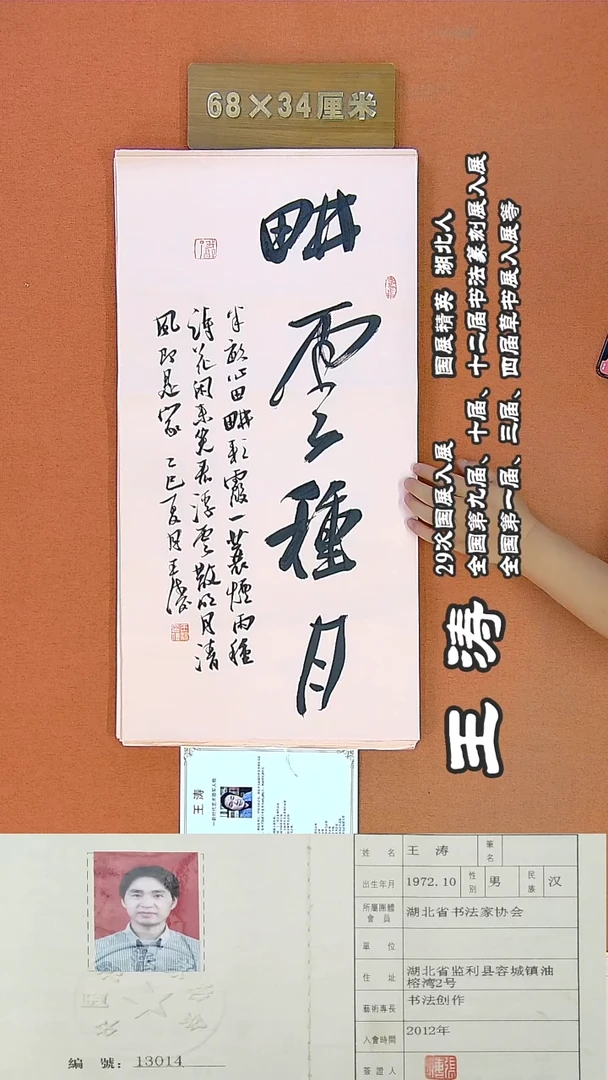 68×34厘米
畊雲種月
半畝心田畊彩霞一蓑煙雨種
詩花閑来笑看浮雲散明月清
風即是家 乙巳夏月王濤
王涛
29次国展入展 国展精英 湖北人
全国第九届、十届、十二届书法篆刻展入展
全国第一届、三届、四届草书展入展等
王 涛
姓 名 王 涛 筆名
出生年月 1972.10 性别 男 民族 汉
所屬團體會員 湖北省书法家协会
單 位
住 址 湖北省监利县容城镇油
榕湾2号
藝術專長 书法创作
入會時間 2012年
簽證人
編 號：13014